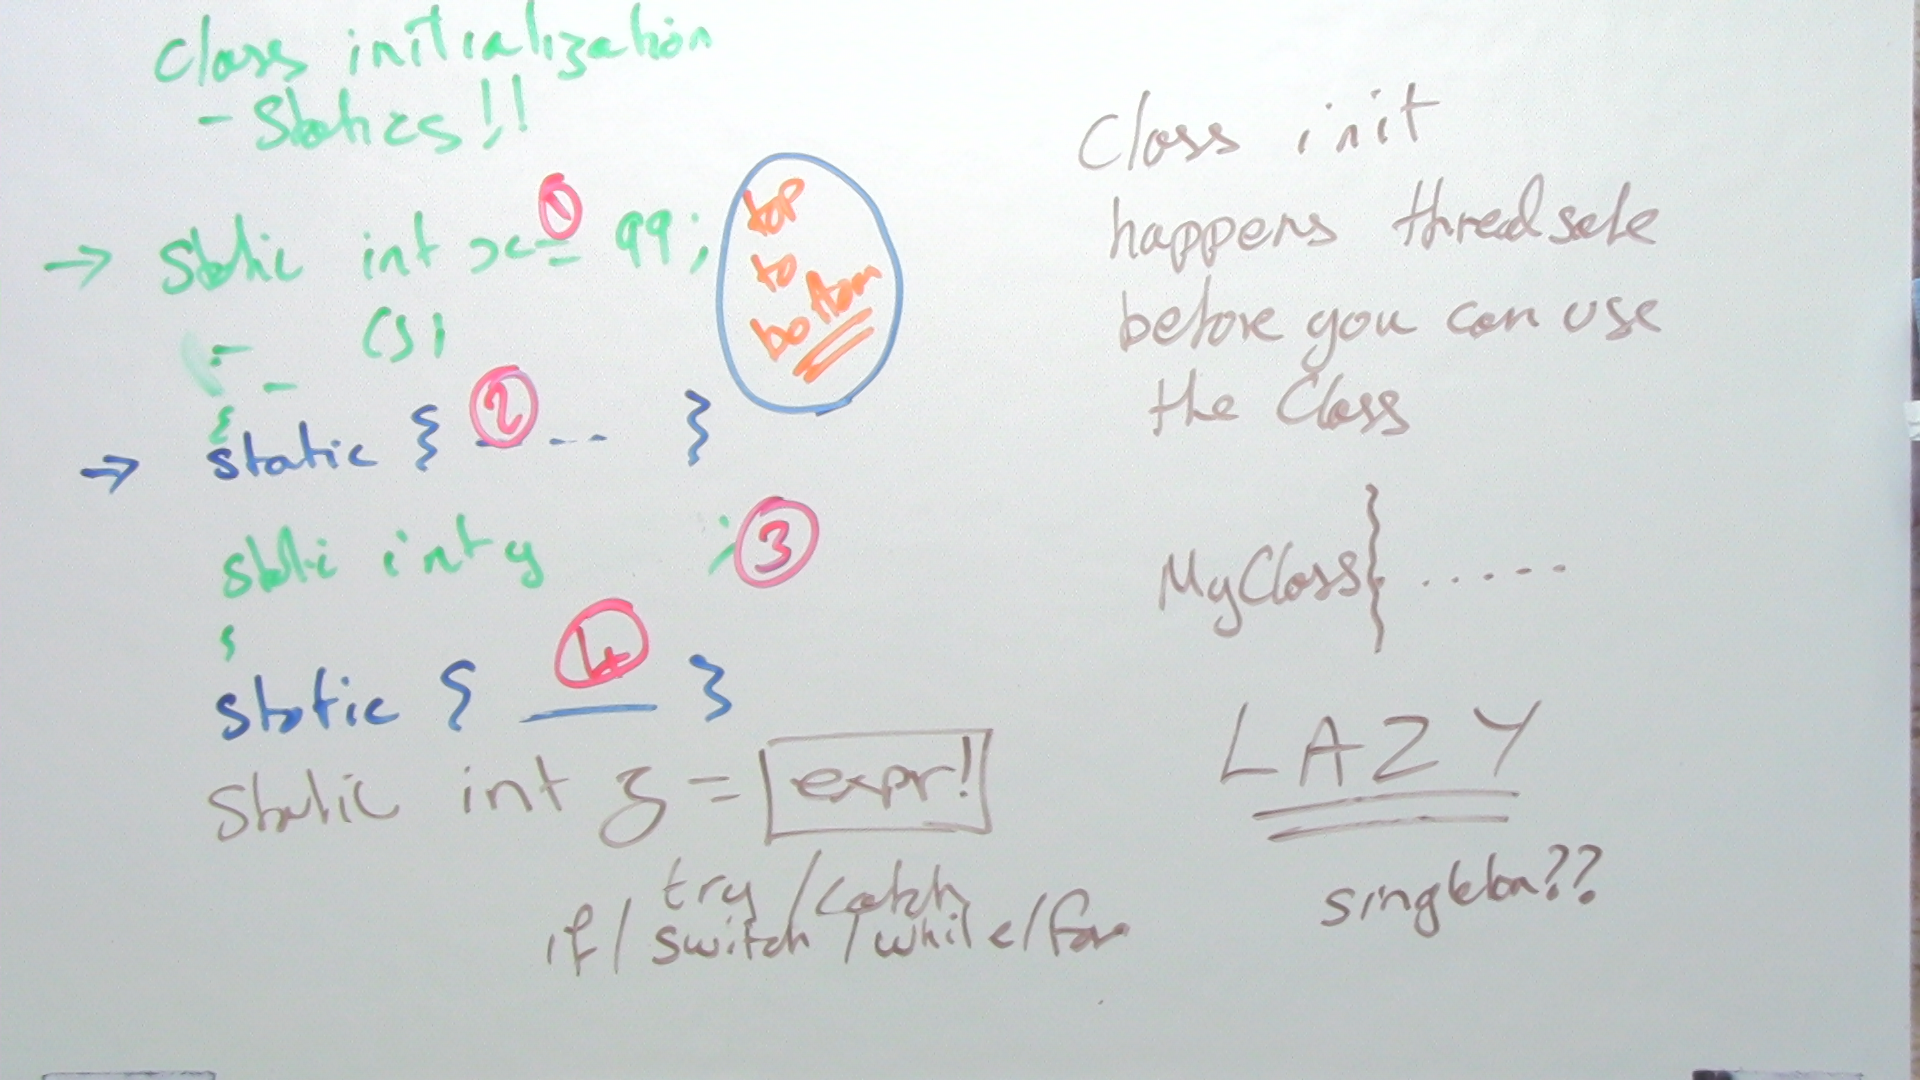 Class initialization
- Statics!!
→ Static int x = 99;
1
top
to
bottom
();
→ static { 2 --- }
static int y ; 3
static { 4 }
Static int z = expr!
try/catch
if/switch/while/for
Class init
happens thred safe
before you can use
the Class
MyClass{ .....
LAZY
singleton??